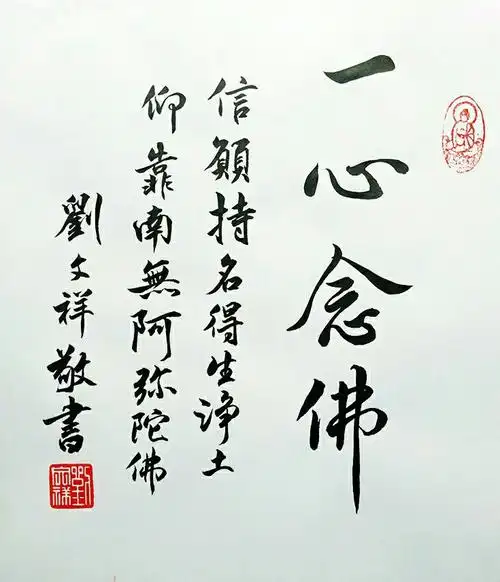 一心念佛
信願持名得生淨土
仰靠南無阿弥陀佛
劉文祥敬書